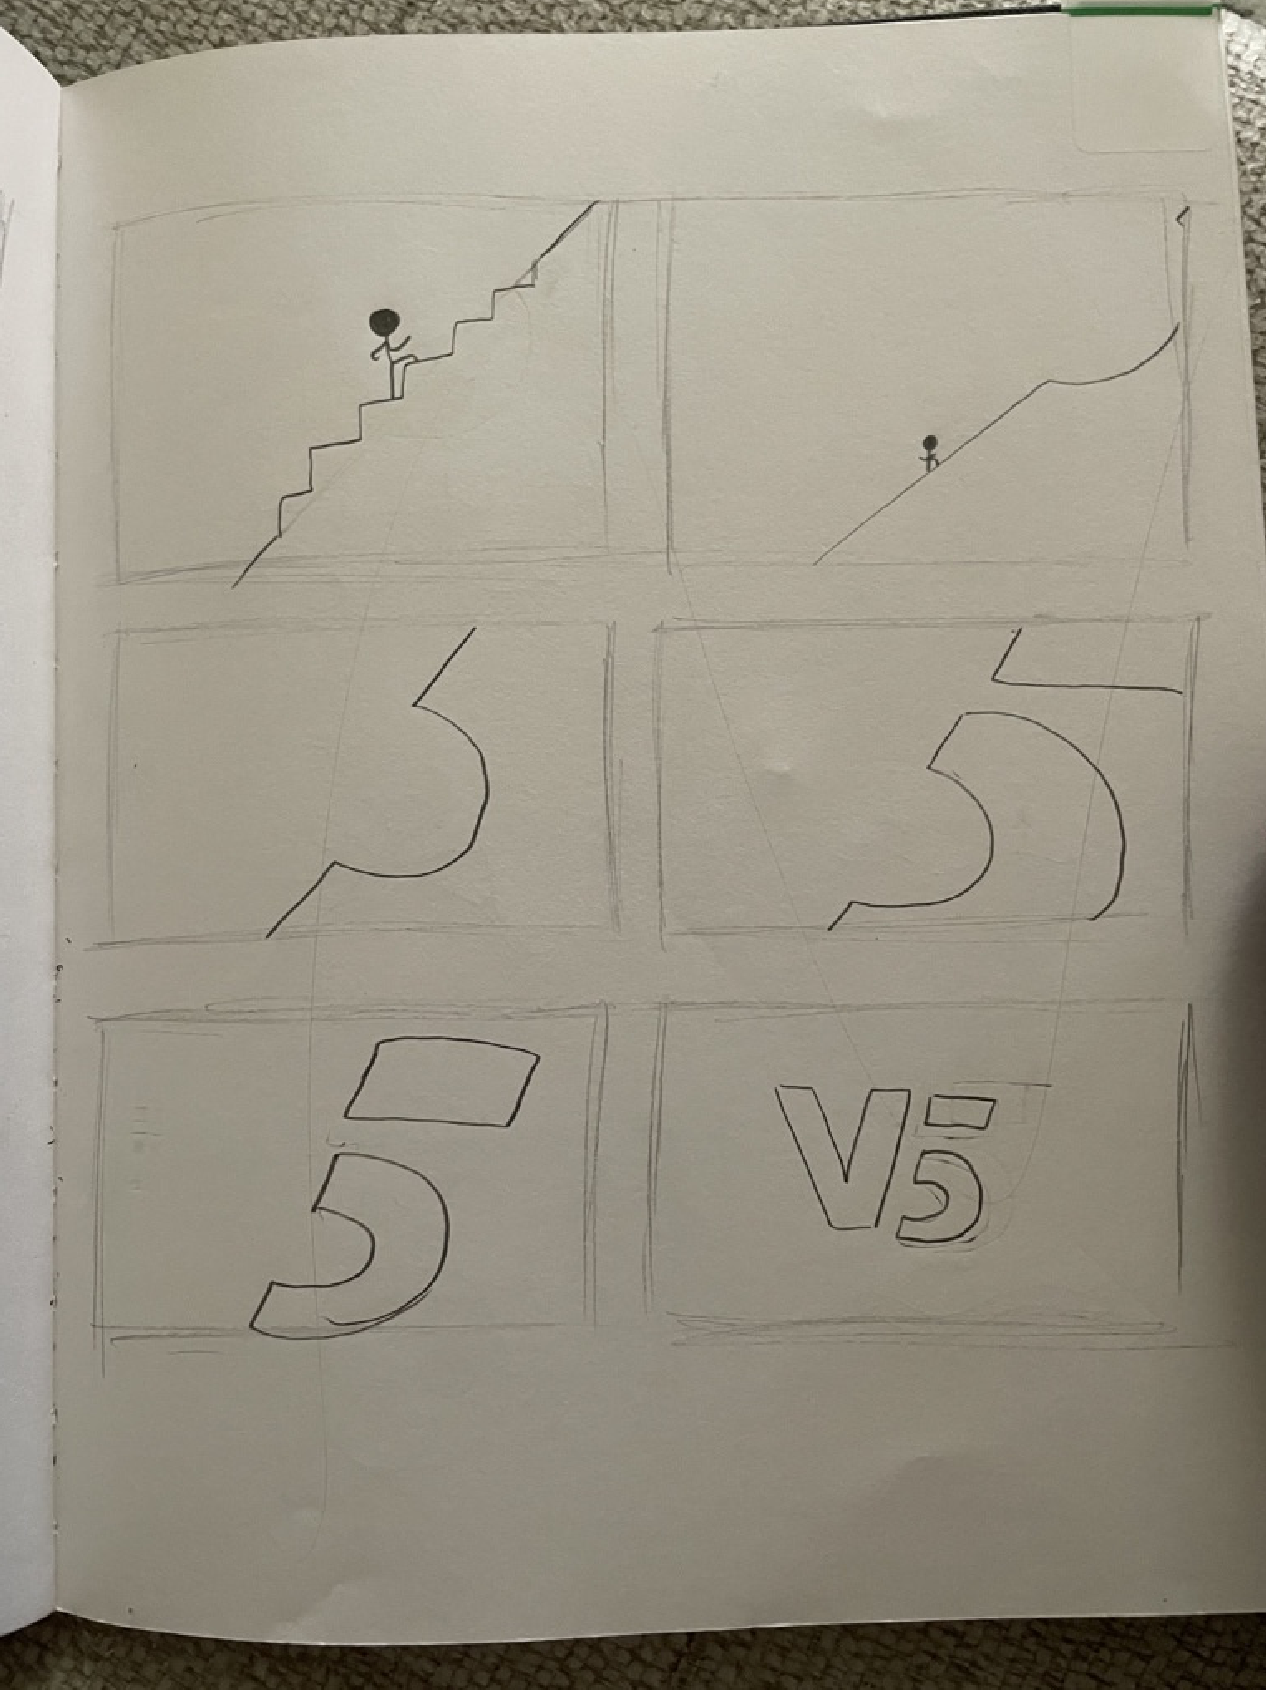 5
V5